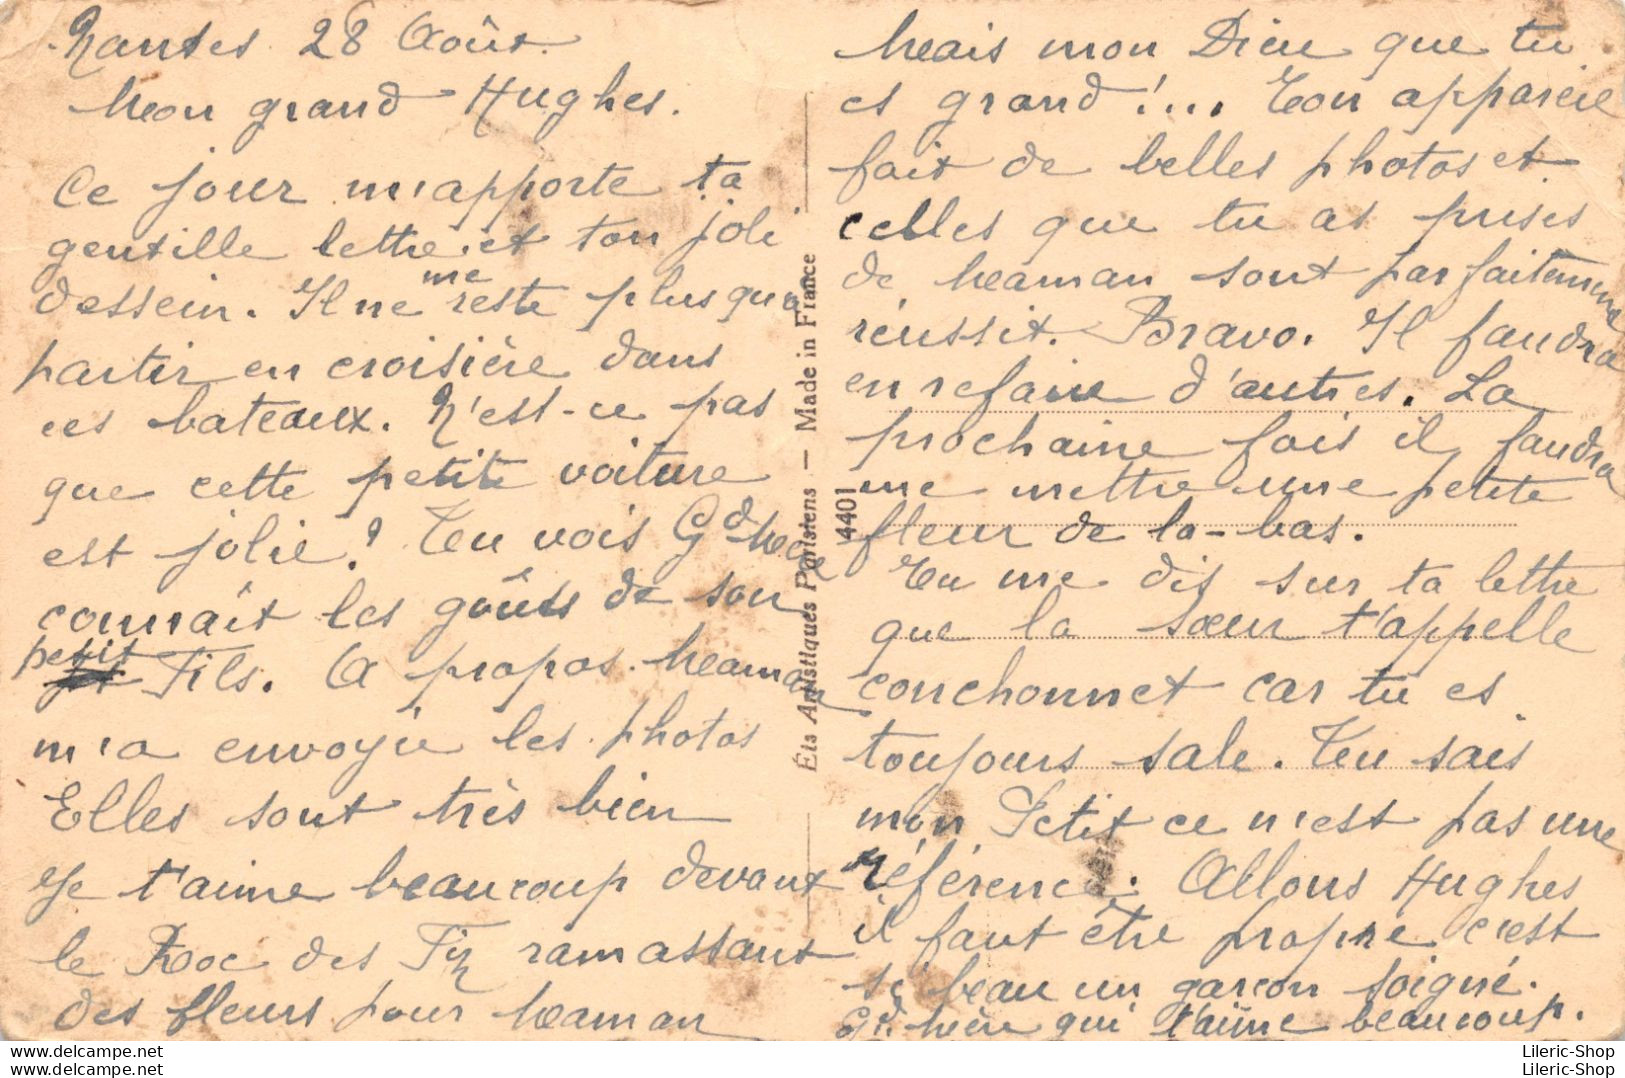 Nantes 28 Août.
Mon grand Hughes.
Ce jour m'apporte ta
gentille lettre et ton joli
dessein. Il ne me reste plus qu'a
partir en croisière dans
ces bateaux. N'est-ce pas
que cette petite voiture
est jolie? Tu vois Gd Mère
connait les goûts de son
petit Fils. A propos. Maman
m'a envoyée les photos
Elles sont très bien
Je t'aime beaucoup devant
le Roc des Fiz ramassant
des fleurs pour Maman
Mais mon Dieu que tu
es grand!... Ton appareil
fait de belles photos et
celles que tu as prises
de Maman sont parfaitement
réussit. Bravo. Il faudra
en refaire d'autres. La
prochaine fois il faudra
me mettre une petite
fleur de la-bas.
Tu me dis sur ta lettre
que la sœur t'appelle
conchonnet car tu es
toujours sale. Tu sais
mon Petit ce n'est pas une
référence. Allons Hughes
il faut être propre c'est
si beau un garçon soigné.
Gd. Mère qui t'aime beaucoup.
Éts Artistiques Parisiens — Made in France
4401
Lileric-Shop
Lileric-Shop
Lileric-Shop
Lileric-Shop